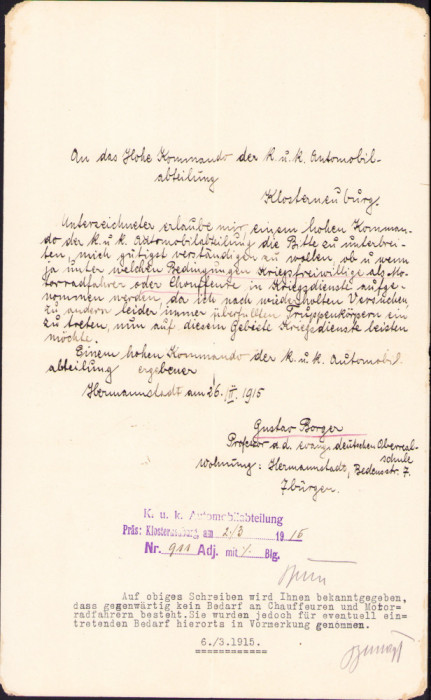 An das Hohe Kommando der k. u. k. Automobil-
abteilung
Klosterneuburg.
Unterzeichneter erlaube mir, einem hohen Komman-
do der k. u. k. Automobilabteilung die Bitte zu unterbrei-
ten, mich gütigst verständigen zu wollen, ob u. wenn
ja unter welchen Bedingungen Kriegsfreiwillige als Mo-
torradfahrer oder Chauffeure in Kriegsdienste aufge-
nommen werden, da ich nach wiederholten Versuchen,
zu andern leider immer überfüllten Truppenkörpern ein
zu treten, nun auf diesem Gebiete Kriegsdienste leisten
möchte.
Einem hohen Kommando der k. u. k. Automobil.
abteilung ergebener
Hermannstadt am 26. 1915
Gustav Borger
Professor a. d. evang. deutschen Oberreal-
schule
Wohnung: Hermannstadt, Bedeusstr. 7.
K. u. k. Automobilabteilung
Präs: Klosterneuburg am 2/3 1915
Nr. 911 Adj. mit Blg.
Auf obiges Schreiben wird Ihnen bekanntgegeben,
dass gegenwärtig kein Bedarf an Chauffeuren und Motor=
radfahrern besteht.Sie wurden jedoch für eventuell ein-
tretenden Bedarf hierorts in Vormerkung genommen.
6./3.1915.